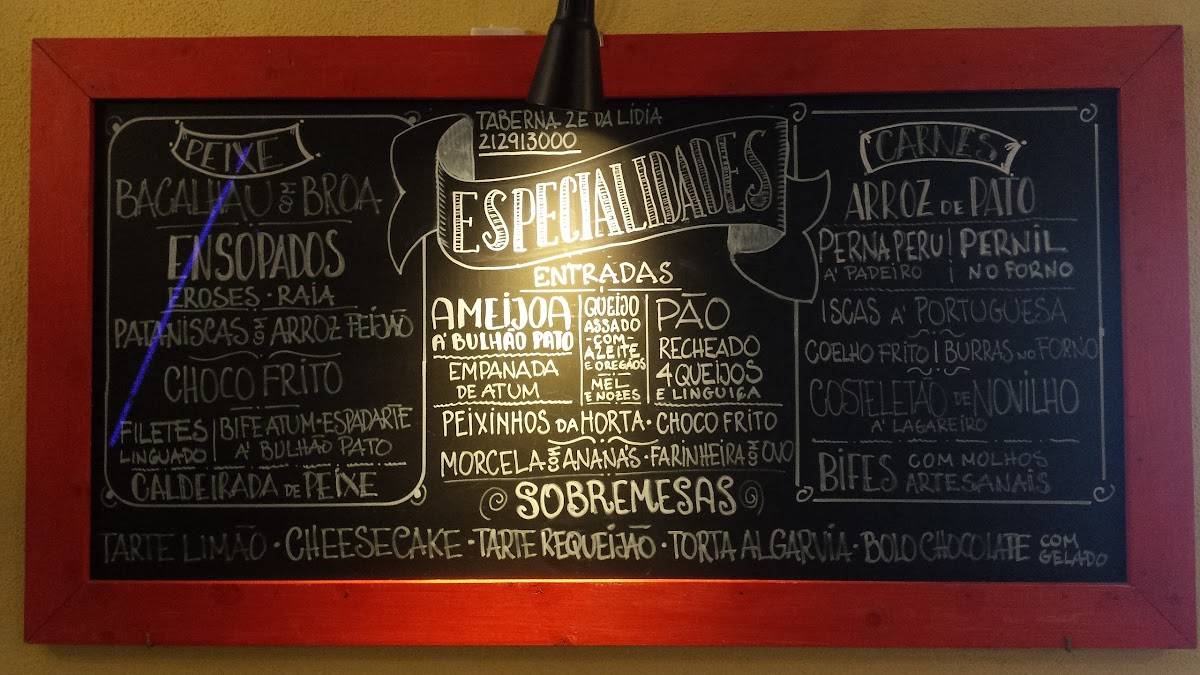 TABERNA ZE DA LÍDIA
212913000
ESPECIALIDADES
PEIXE
BACALHAU COM BROA
ENSOPADOS
EROSES · RAIA
PATANISCAS COM ARROZ FEIJÃO
CHOCO FRITO
FILETES LINGUADO
BIFE ATUM · ESPADARTE
À BULHÃO PATO
CALDEIRADA DE PEIXE
ENTRADAS
AMEIJOA
À BULHÃO PATO
EMPANADA
DE ATUM
QUEIJO
ASSADO
-COM-
AZEITE
E OREGÃOS
MEL
E NOZES
PÃO
RECHEADO
4 QUEIJOS
E LINGUIÇA
PEIXINHOS DA HORTA · CHOCO FRITO
MORCELA COM ANANÁS · FARINHEIRA COM OVO
CARNES
ARROZ DE PATO
PERNA PERU
À PADEIRO
PERNIL
NO FORNO
ISCAS À PORTUGUESA
COELHO FRITO | BURRAS NO FORNO
COSTELETÃO DE NOVILHO
À LAGAREIRO
BIFES COM MOLHOS
ARTESANAIS
SOBREMESAS
TARTE LIMÃO · CHEESECAKE · TARTE REQUEIJÃO · TORTA ALGARVIA · BOLO CHOCOLATE COM GELADO